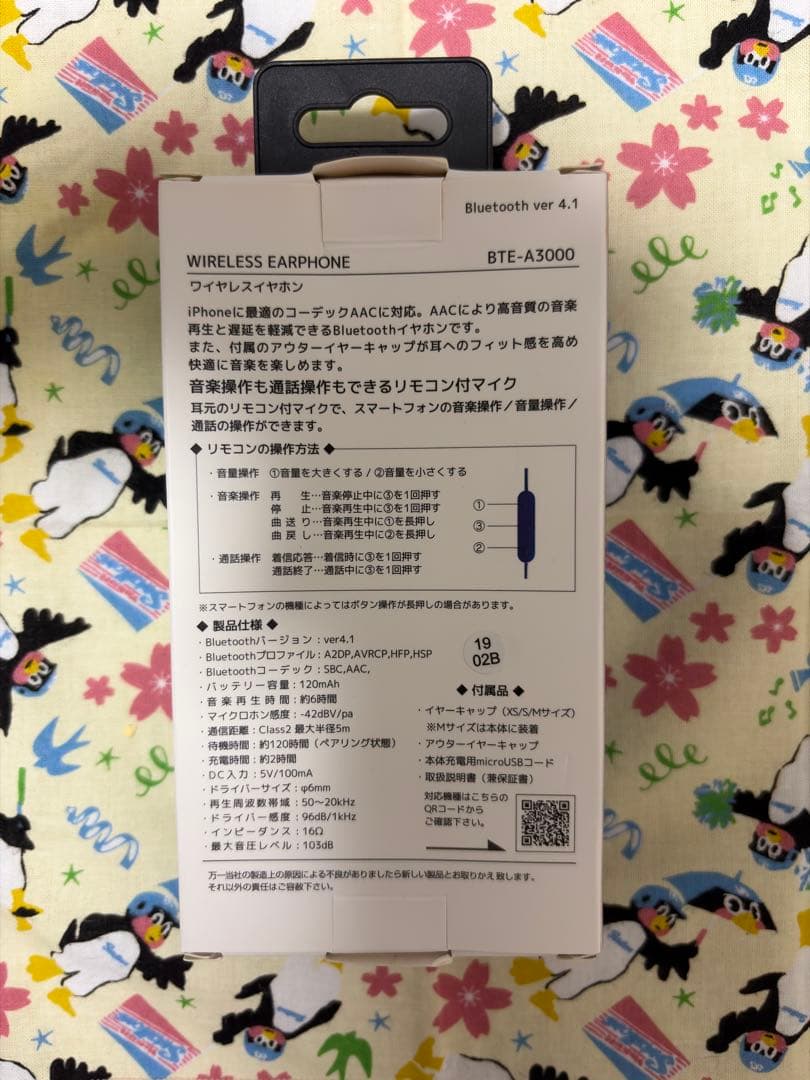 Bluetooth ver 4.1
WIRELESS EARPHONE
BTE-A3000
ワイヤレスイヤホン
iPhoneに最適のコーデックAACに対応。AACにより高音質の音楽
再生と遅延を軽減できるBluetoothイヤホンです。
また、付属のアウターイヤーキャップが耳へのフィット感を高め
快適に音楽を楽しめます。
音楽操作も通話操作もできるリモコン付マイク
耳元のリモコン付マイクで、スマートフォンの音楽操作/音量操作/
通話の操作ができます。
◆ リモコンの操作方法 ◆
・音量操作 ①音量を大きくする / ②音量を小さくする
・音楽操作 再 生…音楽停止中に③を1回押す
停 止…音楽再生中に③を1回押す
曲 送 り…音楽再生中に①を長押し
曲 戻 し…音楽再生中に②を長押し
・通話操作 着信応答…着信時に③を1回押す
通話終了…通話中に③を1回押す
①
③
②
※スマートフォンの機種によってはボタン操作が長押しの場合があります。
◆ 製品仕様 ◆
・Bluetoothバージョン：ver4.1
・Bluetoothプロファイル：A2DP,AVRCP,HFP,HSP
・Bluetoothコーデック：SBC,AAC,
・バッテリー容量：120mAh
・音楽再生時間：約6時間
・マイクロホン感度：-42dBV/pa
・通信距離：Class2 最大半径5m
・待機時間：約120時間（ペアリング状態）
・充電時間：約2時間
・DC入力：5V/100mA
・ドライバーサイズ：φ6mm
・再生周波数帯域：50～20kHz
・ドライバー感度：96dB/1kHz
・インピーダンス：16Ω
・最大音圧レベル：103dB
19
02B
◆ 付属品 ◆
・イヤーキャップ（XS/S/Mサイズ）
※Mサイズは本体に装着
・アウターイヤーキャップ
・本体充電用microUSBコード
・取扱説明書（兼保証書）
対応機種はこちらの
QRコードから
ご確認下さい。
万一当社の製造上の原因による不良がありましたら新しい製品とお取りかえ致します。
それ以外の責任はご容赦下さい。